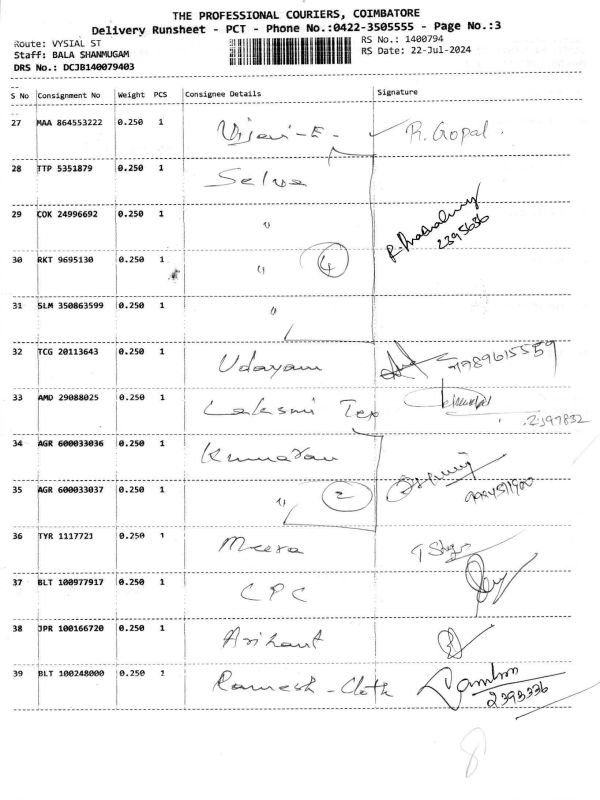 THE PROFESSIONAL COURIERS, COIMBATORE
Delivery Runsheet - PCT - Phone No.:0422-3505555 - Page No.:3
Route: VYSIAL ST RS No.: 1400794
Staff: BALA SHANMUGAM RS Date: 22-Jul-2024
DRS No.: DCJB140079403
S No Consignment No Weight PCS Consignee Details Signature
27 MAA 864553222 0.250 1 R. Gopal.
28 TTP 5351879 0.250 1 Selva
29 COK 24996692 0.250 1 " 2395636
30 RKT 9695130 0.250 1 " 4
31 SLM 350863599 0.250 1 "
32 TCG 20113643 0.250 1 Udayam
33 AMD 29088025 0.250 1 Laksmi Tex 2397832
34 AGR 600033036 0.250 1 Kumaran
35 AGR 600033037 0.250 1 " 2
36 TYR 1117721 0.250 1 Meera
37 BLT 100977917 0.250 1 CPC
38 JPR 100166720 0.250 1 Arihant
39 BLT 100248000 0.250 1 Ramesh - Cloth 2393336